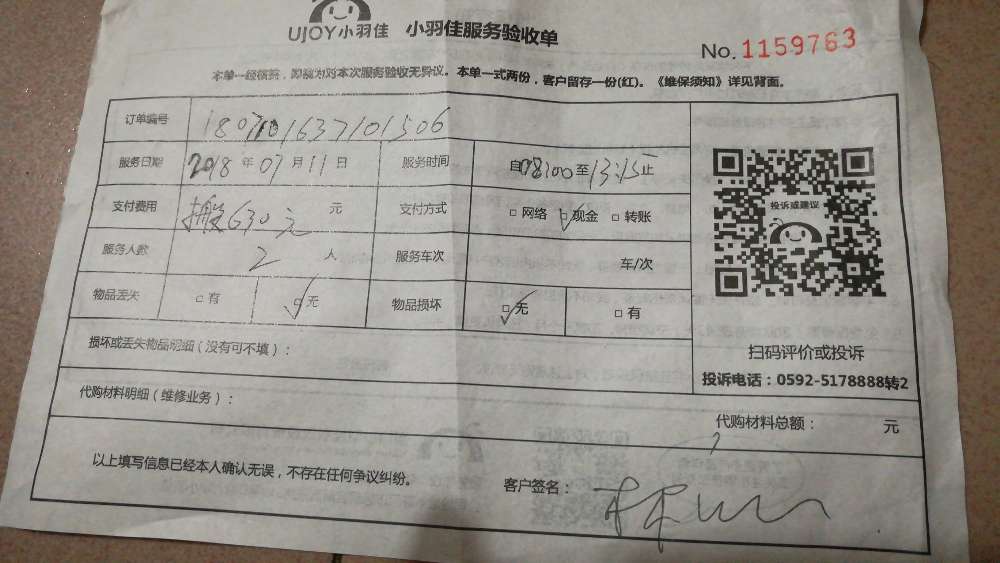 UJOY小羽佳 小羽佳服务验收单
No. 1159763
本单一经核签，即视为对本次服务验收无异议。本单一式两份，客户留存一份(红)。《维保须知》详见背面。
订单编号 1807101637101506
服务日期 2018 年 07 月 11 日 服务时间 自 08:00 至 13:15 止
支付费用 搬630元 元 支付方式 □ 网络 □ 现金 □ 转账
服务人数 2 人 服务车次 车/次
物品丢失 □ 有 □ 无 物品损坏 □ 无 □ 有
投诉或建议
扫码评价或投诉
投诉电话：0592-5178888转2
损坏或丢失物品明细（没有可不填）：
代购材料明细（维修业务）：
代购材料总额： 元
以上填写信息已经本人确认无误，不存在任何争议纠纷。
客户签名：